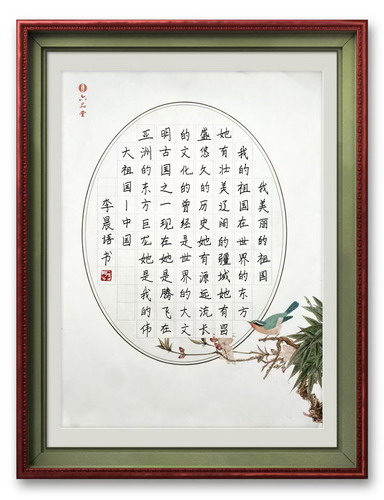 六品堂
我美丽的祖国
我的祖国在世界的东方
她有壮美辽阔的疆域她有昌
盛悠久的历史她有源远流长
的文化的曾经是世界的大文
明古国之一现在她是腾飞在
亚洲的东方巨龙她是我的伟
大祖国—中国
李晨书